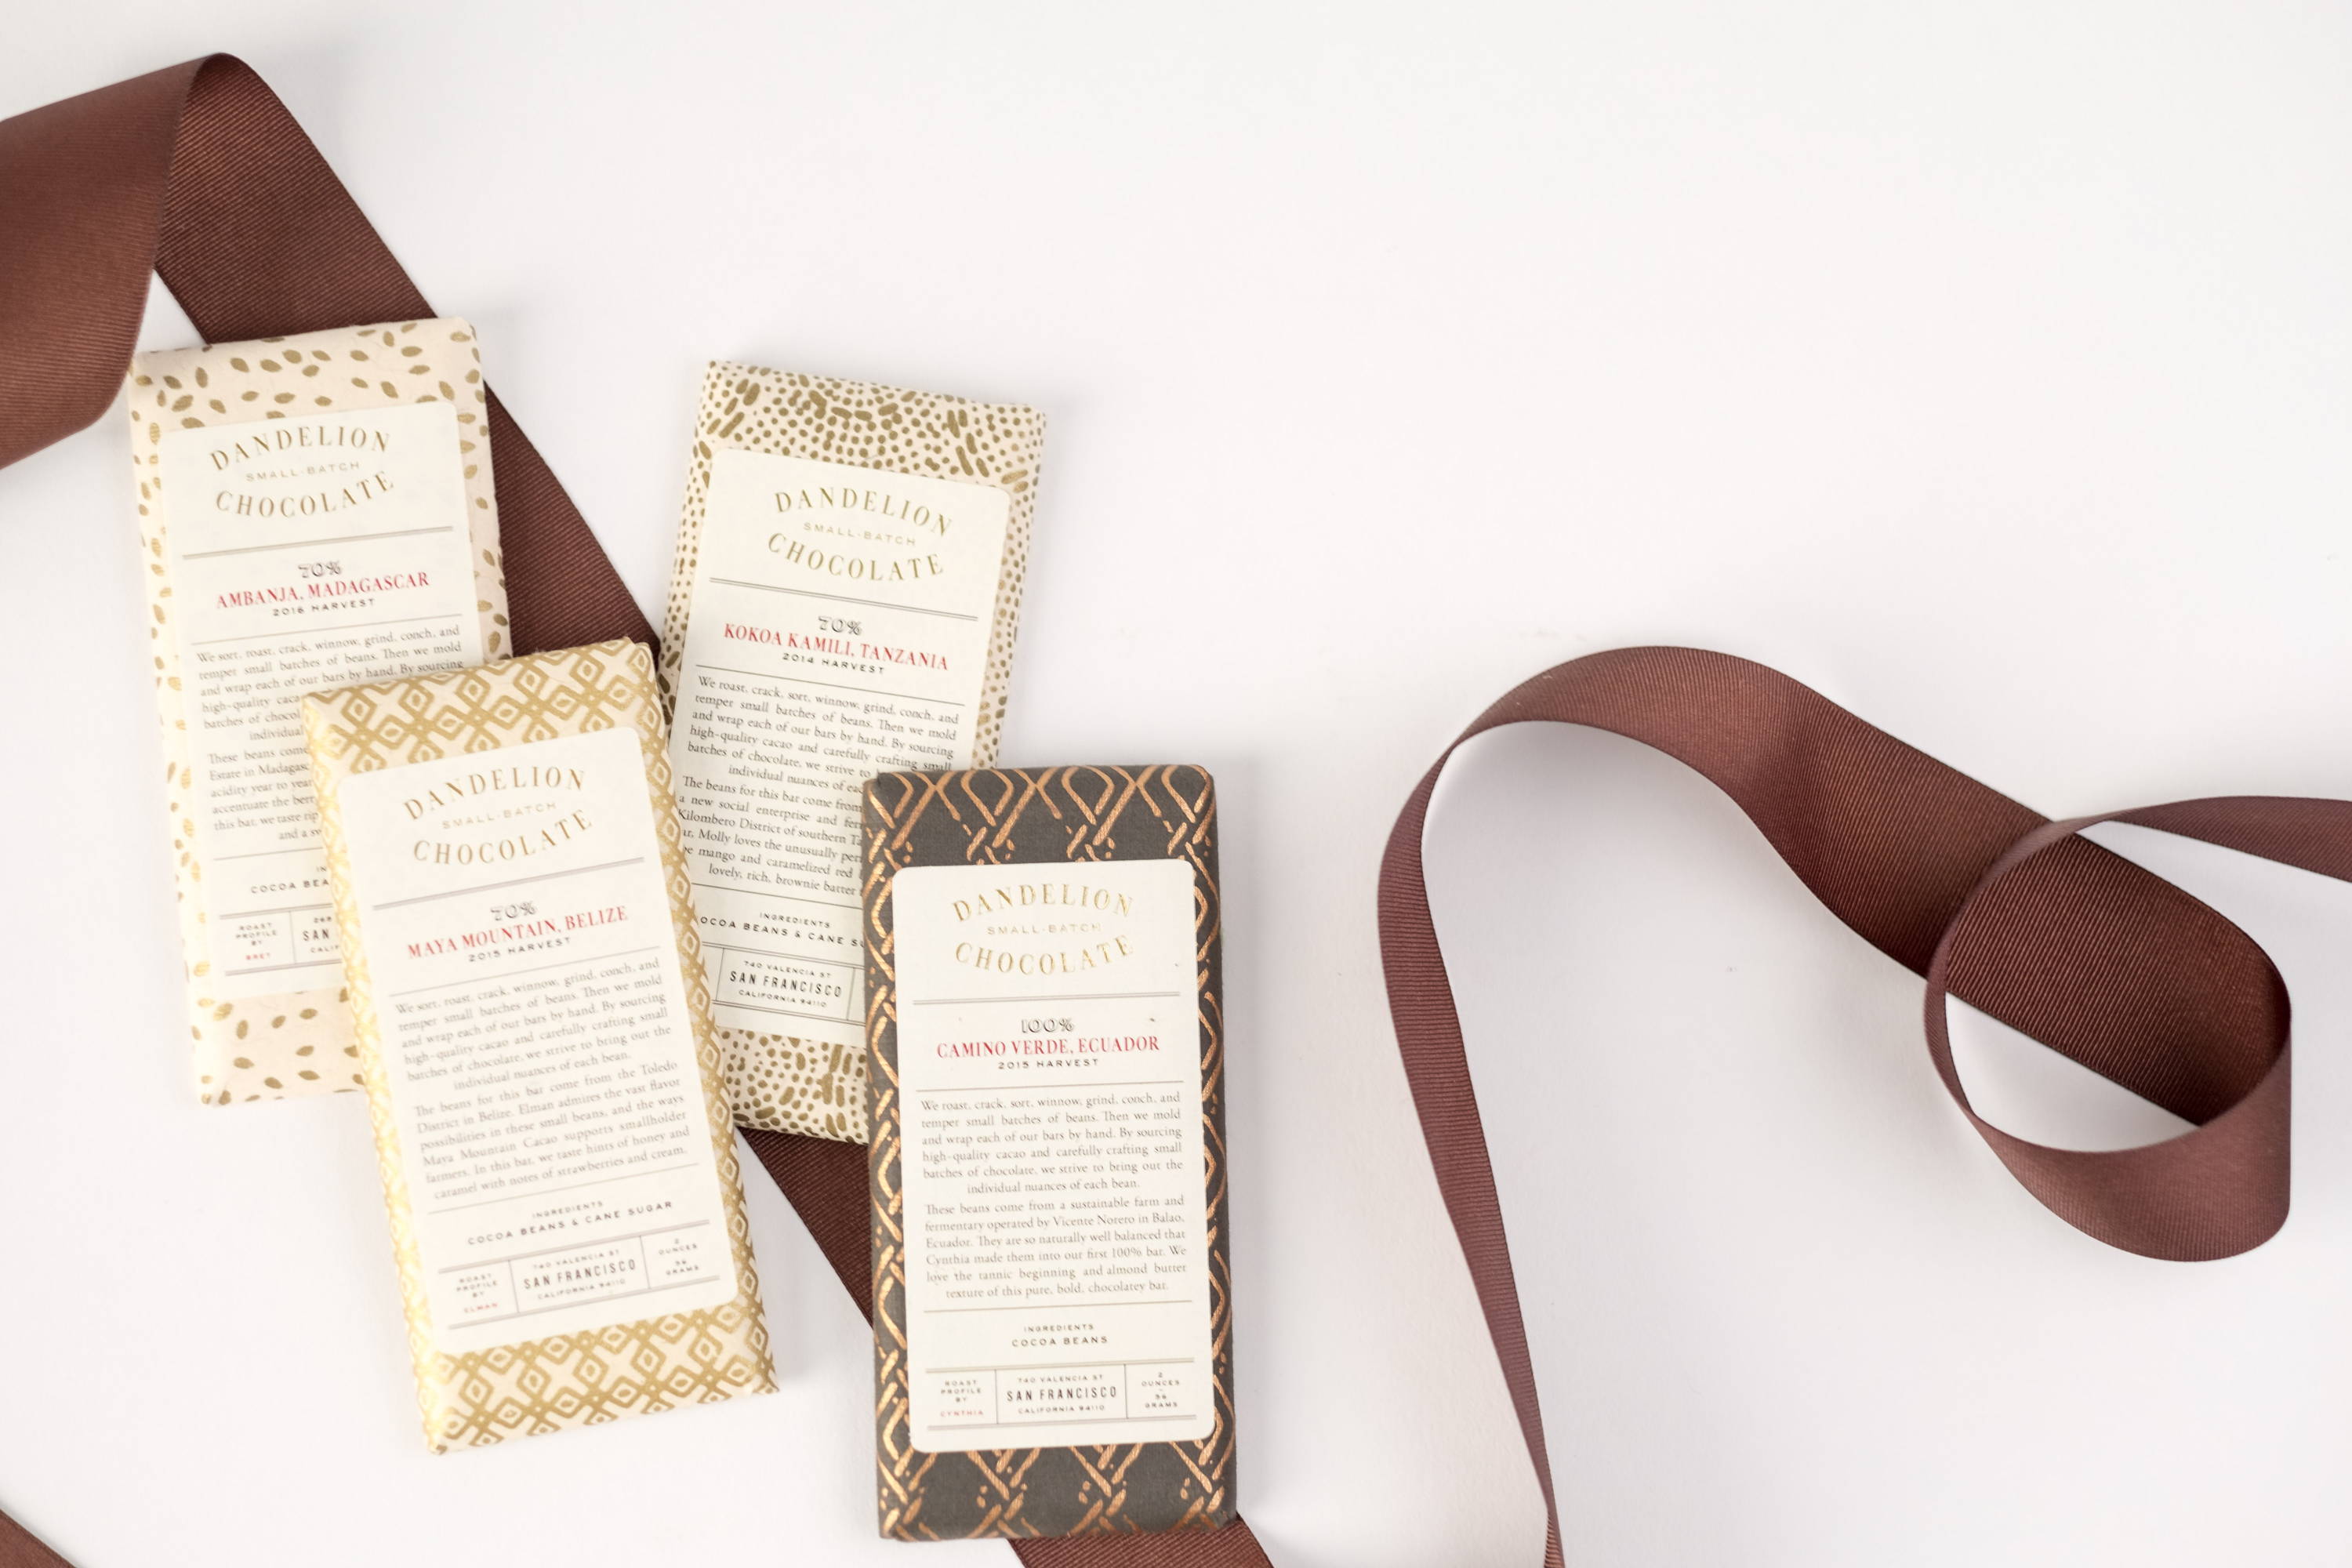 DANDELION
SMALL-BATCH
CHOCOLATE
70%
AMBANJA, MADAGASCAR
2016 HARVEST
We sort, roast, crack, winnow, grind, conch, and
temper small batches of beans. Then we mold
and wrap each of our bars by hand. By sourcing
high-quality caca
batches of chocol
individual
These beans come
Estate in Madagasc
acidity year to year
accentuate the berr
this bar, we taste rip
and a sw
IN
COCOA BEA
ROAST
PROFILE
BY
BRET
SAN
CALIF
DANDELION
SMALL-BATCH
CHOCOLATE
70%
KOKOA KAMILI, TANZANIA
2014 HARVEST
We roast, crack, sort, winnow, grind, conch, and
temper small batches of beans. Then we mold
and wrap each of our bars by hand. By sourcing
high-quality cacao and carefully crafting small
batches of chocolate, we strive to
individual nuances of eac
The beans for this bar come from
a new social enterprise and fer
Kilombero District of southern Ta
ar, Molly loves the unusually per
pe mango and caramelized red
lovely, rich, brownie batter
INGREDIENTS
OCOA BEANS & CANE SU
740 VALENCIA ST
SAN FRANCISCO
CALIFORNIA 94110
DANDELION
SMALL-BATCH
CHOCOLATE
70%
MAYA MOUNTAIN, BELIZE
2015 HARVEST
We sort, roast, crack, winnow, grind, conch, and
temper small batches of beans. Then we mold
and wrap each of our bars by hand. By sourcing
high-quality cacao and carefully crafting small
batches of chocolate, we strive to bring out the
individual nuances of each bean.
The beans for this bar come from the Toledo
District in Belize. Elman admires the vast flavor
possibilities in these small beans, and the ways
Maya Mountain Cacao supports smallholder
farmers. In this bar, we taste hints of honey and
caramel with notes of strawberries and cream.
INGREDIENTS
COCOA BEANS & CANE SUGAR
ROAST
PROFILE
BY
ELMAN
740 VALENCIA ST
SAN FRANCISCO
CALIFORNIA 94110
2
OUNCES
56
GRAMS
DANDELION
SMALL-BATCH
CHOCOLATE
100%
CAMINO VERDE, ECUADOR
2015 HARVEST
We roast, crack, sort, winnow, grind, conch, and
temper small batches of beans. Then we mold
and wrap each of our bars by hand. By sourcing
high-quality cacao and carefully crafting small
batches of chocolate, we strive to bring out the
individual nuances of each bean.
These beans come from a sustainable farm and
fermentary operated by Vicente Norero in Balao,
Ecuador. They are so naturally well balanced that
Cynthia made them into our first 100% bar. We
love the tannic beginning and almond butter
texture of this pure, bold, chocolatey bar.
INGREDIENTS
COCOA BEANS
ROAST
PROFILE
BY
CYNTHIA
740 VALENCIA ST
SAN FRANCISCO
CALIFORNIA 94110
2
OUNCES
56
GRAMS